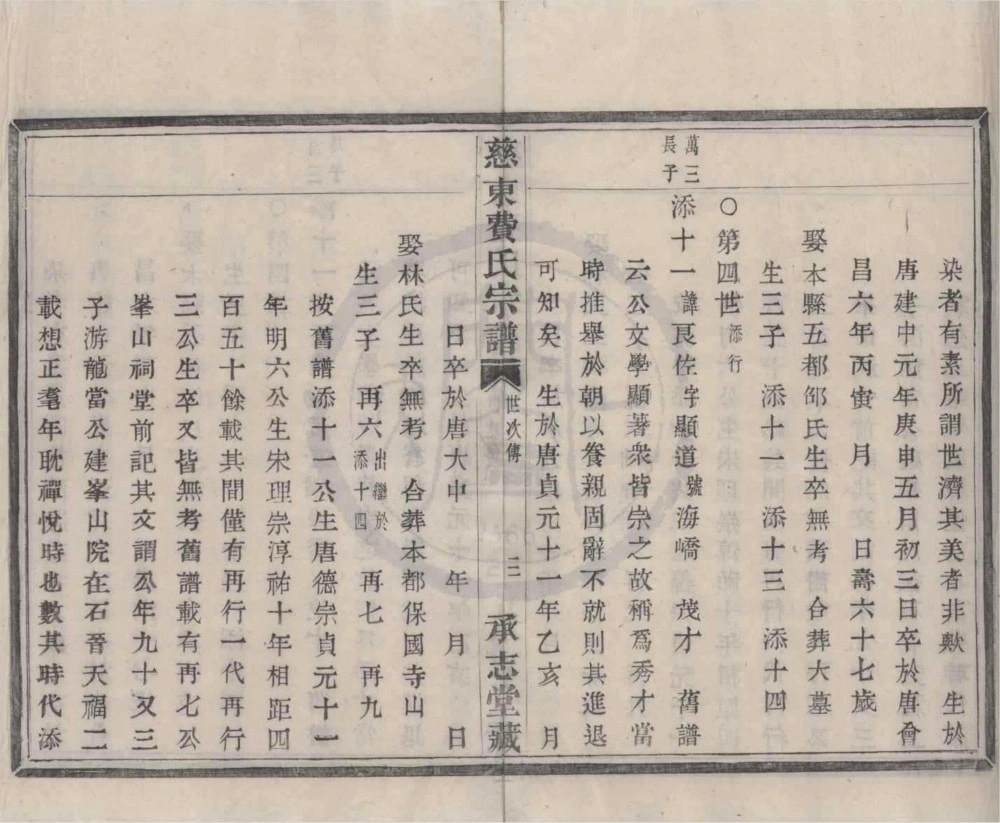 染者有素所謂世濟其美者非歟　生於
唐建中元年庚申五月初三日卒於唐會
昌六年丙寅月　　日壽六十七歲
娶本縣五都邹氏生卒無考　合葬大墓
生三子　添十一　添十三　添十四
〇第四世添行
萬三長子
添十一諱良佐字顯道號海嶠　茂才　舊譜
云公文學顯著衆皆宗之故稱爲秀才當
時推舉於朝以養親固辭不就則其進退
可知矣　生於唐貞元十一年乙亥　月
慈東費氏宗譜　世次傳　三　承志堂藏
日卒於唐大中　年　月　日
娶林氏生卒無考　合葬本都保國寺山
生三子　再六出繼於添十四　再七　再九
按舊譜添十一公生唐德宗貞元十一
年明六公生宋理宗淳祐十年相距四
百五十餘載其間僅有再行一代再行
三公生卒又皆無考舊譜載有再七公
峯山祠堂前記其文謂公年九十又三
子游龍當公建峯山院在石晉天福二
載想正耄年耽禪悅時也數其時代添